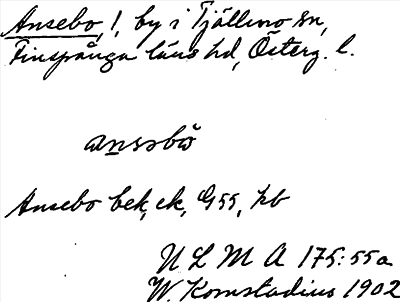 Ansebo, !, by i Tjällmo sn,
Finspånga läns hd, Österg. l.
ansəbω̆
Ansebo bek, ek, G55, hb
ULMA 175:55a
W. Komstadius 1902